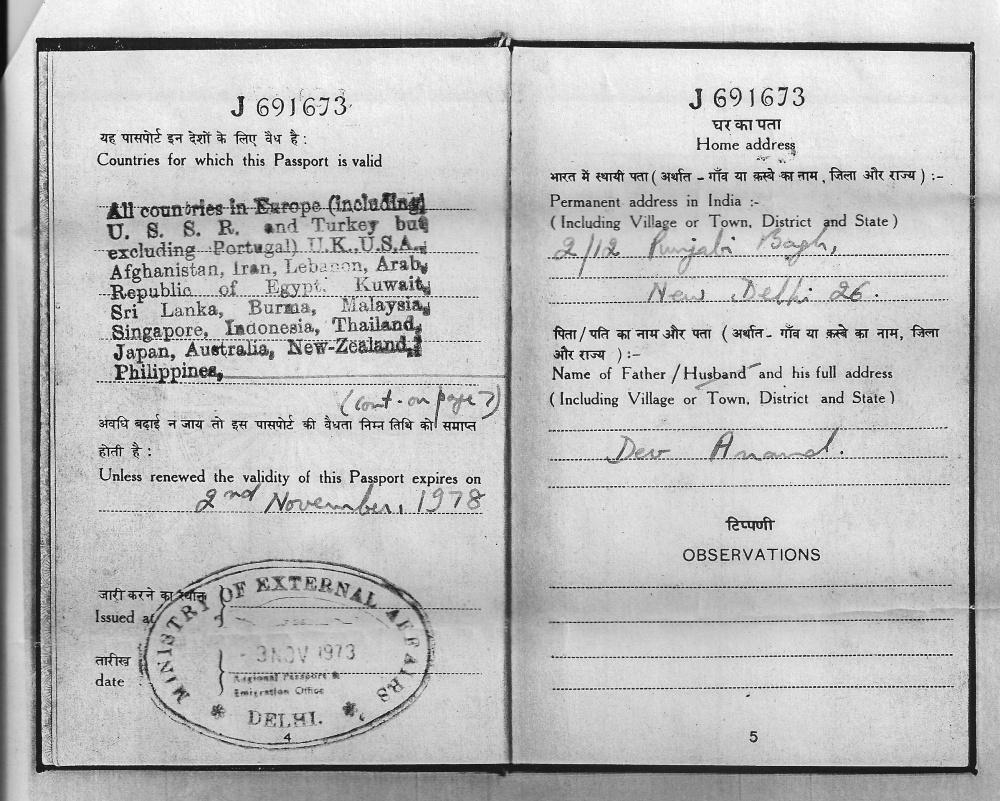 J 691673
यह पासपोर्ट इन देशों के लिए वैध है :
Countries for which this Passport is valid
All countries in Europe (including
U. S. S. R. and Turkey but
excluding Portugal) U.K., U.S.A.,
Afghanistan, Iran, Lebanon, Arab,
Republic of Egypt, Kuwait,
Sri Lanka, Burma, Malaysia,
Singapore, Indonesia, Thailand,
Japan, Australia, New-Zealand,
Philippines,
(cont - on page 7)
अवधि बढ़ाई न जाय तो इस पासपोर्ट की वैधता निम्न तिथि को समाप्त
होती है :
Unless renewed the validity of this Passport expires on
2nd November, 1978
जारी करने का स्थान
Issued at
तारीख
date
MINISTRY OF EXTERNAL AFFAIRS
- 3 NOV 1973
Regional Passport &
Emigration Office
DELHI.
4
J 691673
घर का पता
Home address
भारत में स्थायी पता ( अर्थात - गाँव या क़स्बे का नाम, जिला और राज्य ) :-
Permanent address in India :-
( Including Village or Town, District and State )
2/12 Punjabi Bagh,
New Delhi 26.
पिता / पति का नाम और पता ( अर्थात - गाँव या क़स्बे का नाम, जिला
और राज्य ) :-
Name of Father / Husband and his full address
( Including Village or Town, District and State )
Dev Anand.
टिप्पणी
OBSERVATIONS
5